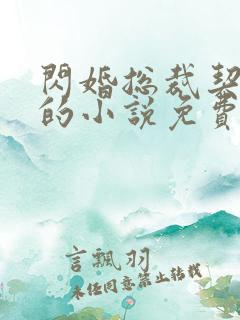 閃婚總裁契
的小說免費
言飄羽
未经同意禁止转载